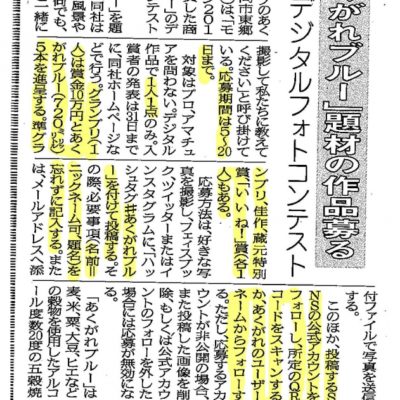 がれブルー」題材の作品募る
デジタルフォトコンテスト
のあく
市東郷
は「モ
した商
」のデ
ンテスト
」を題
風景や
同社は
可でも、
と一緒に
撮影して私たちに教えて
くださいと呼び掛けて
いる。応募期間は5～20
日まで。
対象はプロ、アマチュ
アを問わない。デジタル
作品で1人1点のみ。入
賞者の発表は31日まで
に、同社ホームページな
どで行う。グランプリ(1
人)は賞金10万円とあく
がれブルー(720㍉㍑)
5本を進呈する。準グラ
ンプリ、佳作、蔵元特別
賞、「いいね!」賞(各1
人)もある。
応募方法は、好きな写
真を撮影し、フェイスブッ
ク、ツイッターまたはイ
ンスタグラムに、「ハッ
シュタグ#あくがれブル
ー」を付けて投稿する。そ
の際、必要事項(名前＝
ニックネーム可、題名)を
忘れずに記入する。また
は、メールアドレスへ添
付ファイルで写真を送信
する。
このほか、投稿するS
NSの公式アカウントを
フォローし、所定のQR
コードをスキャンする
か、あくがれのユーザー
ネームからフォローす
る。ただし、応募するアカ
ウントが非公開の場合、
また投稿した画像を削
除、もしくは公式アカウ
ントのフォローを外した
場合には応募が無効にな
る。
「あくがれブルー」は
麦、米、粟、大豆、ヒエなど
の穀物を使用したアルコ
ール度数20度の五穀焼